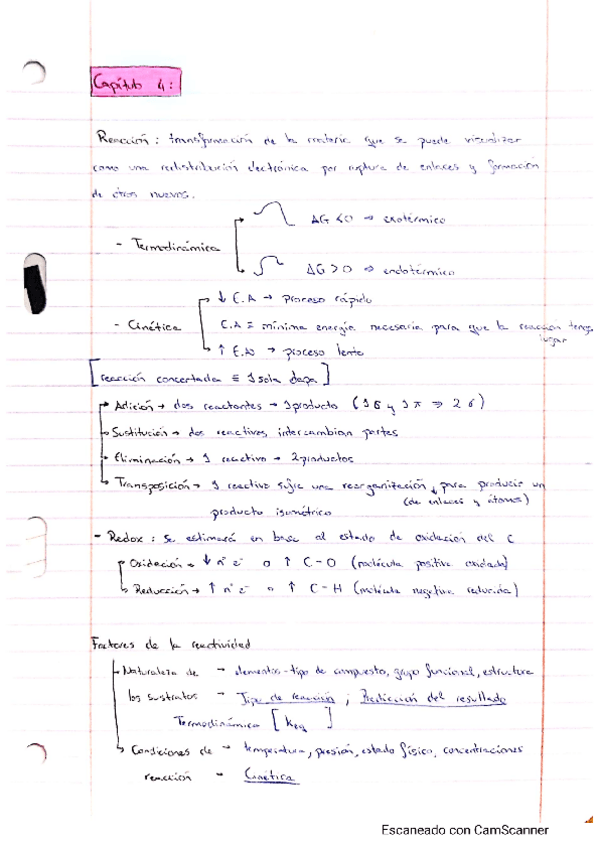 Capítulo 4:
Reacción: transformación de la materia que se puede visualizar
como una redistribución electrónica por ruptura de enlaces y formación
de otros nuevos.
- Termodinámica
ΔG < 0 ⇒ exotérmico
ΔG > 0 ⇒ endotérmico
- Cinética
↓ E.A → proceso rápido
E.A ≡ mínima energía necesaria para que la reacción tenga
lugar
↑ E.A → proceso lento
[reacción concertada ≡ 1 sola etapa]
Adición → dos reactantes → 1 producto (1 σ y 1 π ⇒ 2 σ)
Sustitución → dos reactivos, intercambian partes
Eliminación → 1 reactivo → 2 productos
Transposición → 1 reactivo sufre una reorganización ↓ para producir un
(de enlaces y átomos)
producto isomérico
- Redox: se estimará en base al estado de oxidación del C
Oxidación → ↓ nº e⁻ o ↑ C-O (molécula positiva oxidada)
Reducción → ↑ nº e⁻ o ↑ C-H (molécula negativa reducida)
Factores de la reactividad
Naturaleza de → elementos-tipo de compuesto, grupo funcional, estructura
los sustratos → Tipo de reacción ; Predicción del resultado
Termodinámica [Keq ]
Condiciones de → temperatura, presión, estado físico, concentraciones
reacción → Cinética
Escaneado con CamScanner